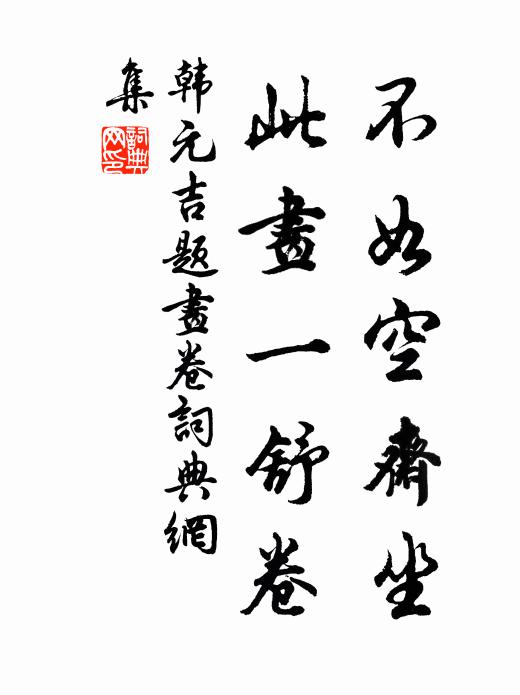 不如空齋坐
此畫一舒卷
韩元吉题畫卷詞典網
集
詞典
网印